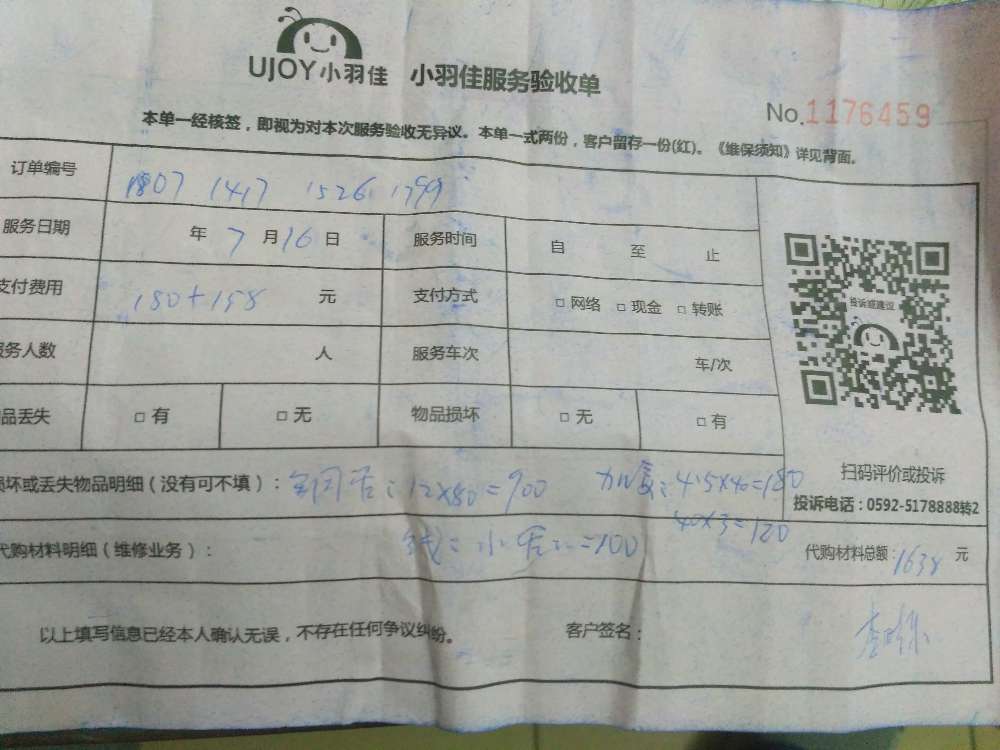 UJOY小羽佳 小羽佳服务验收单
No.1176459
本单一经核签，即视为对本次服务验收无异议。本单一式两份，客户留存一份(红)。《维保须知》详见背面。
订单编号 1807 1417 1526 1799
服务日期 年 7 月 16 日 服务时间 自 至 止
支付费用 180+158 元 支付方式 □ 网络 □ 现金 □ 转账
服务人数 人 服务车次 车/次
品丢失 □ 有 □ 无 物品损坏 □ 无 □ 有
投诉或建议
扫码评价或投诉
投诉电话：0592-5178888转2
损坏或丢失物品明细（没有可不填）： 12×80=900 4.5×40=180
40×3=120
代购材料明细（维修业务）： =100 代购材料总额：1638 元
以上填写信息已经本人确认无误，不存在任何争议纠纷。 客户签名：